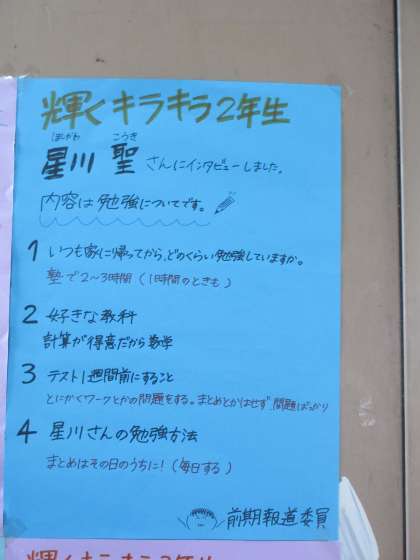 輝くキラキラ2年生
ほしかわ こうき
星川 聖さんにインタビューしました。
内容は勉強についてです。
1 いつも家に帰ってから、どのくらい勉強していますか。
塾で2〜3時間(1時間のときも)
2 好きな教科
計算が得意だから数学
3 テスト1週間前にすること
とにかくワークとかの問題をする。まとめとかはせず、問題ばっかり
4 星川さんの勉強方法
まとめはその日のうちに!(毎日する)
前期報道委員
輝くキラキラ2年生